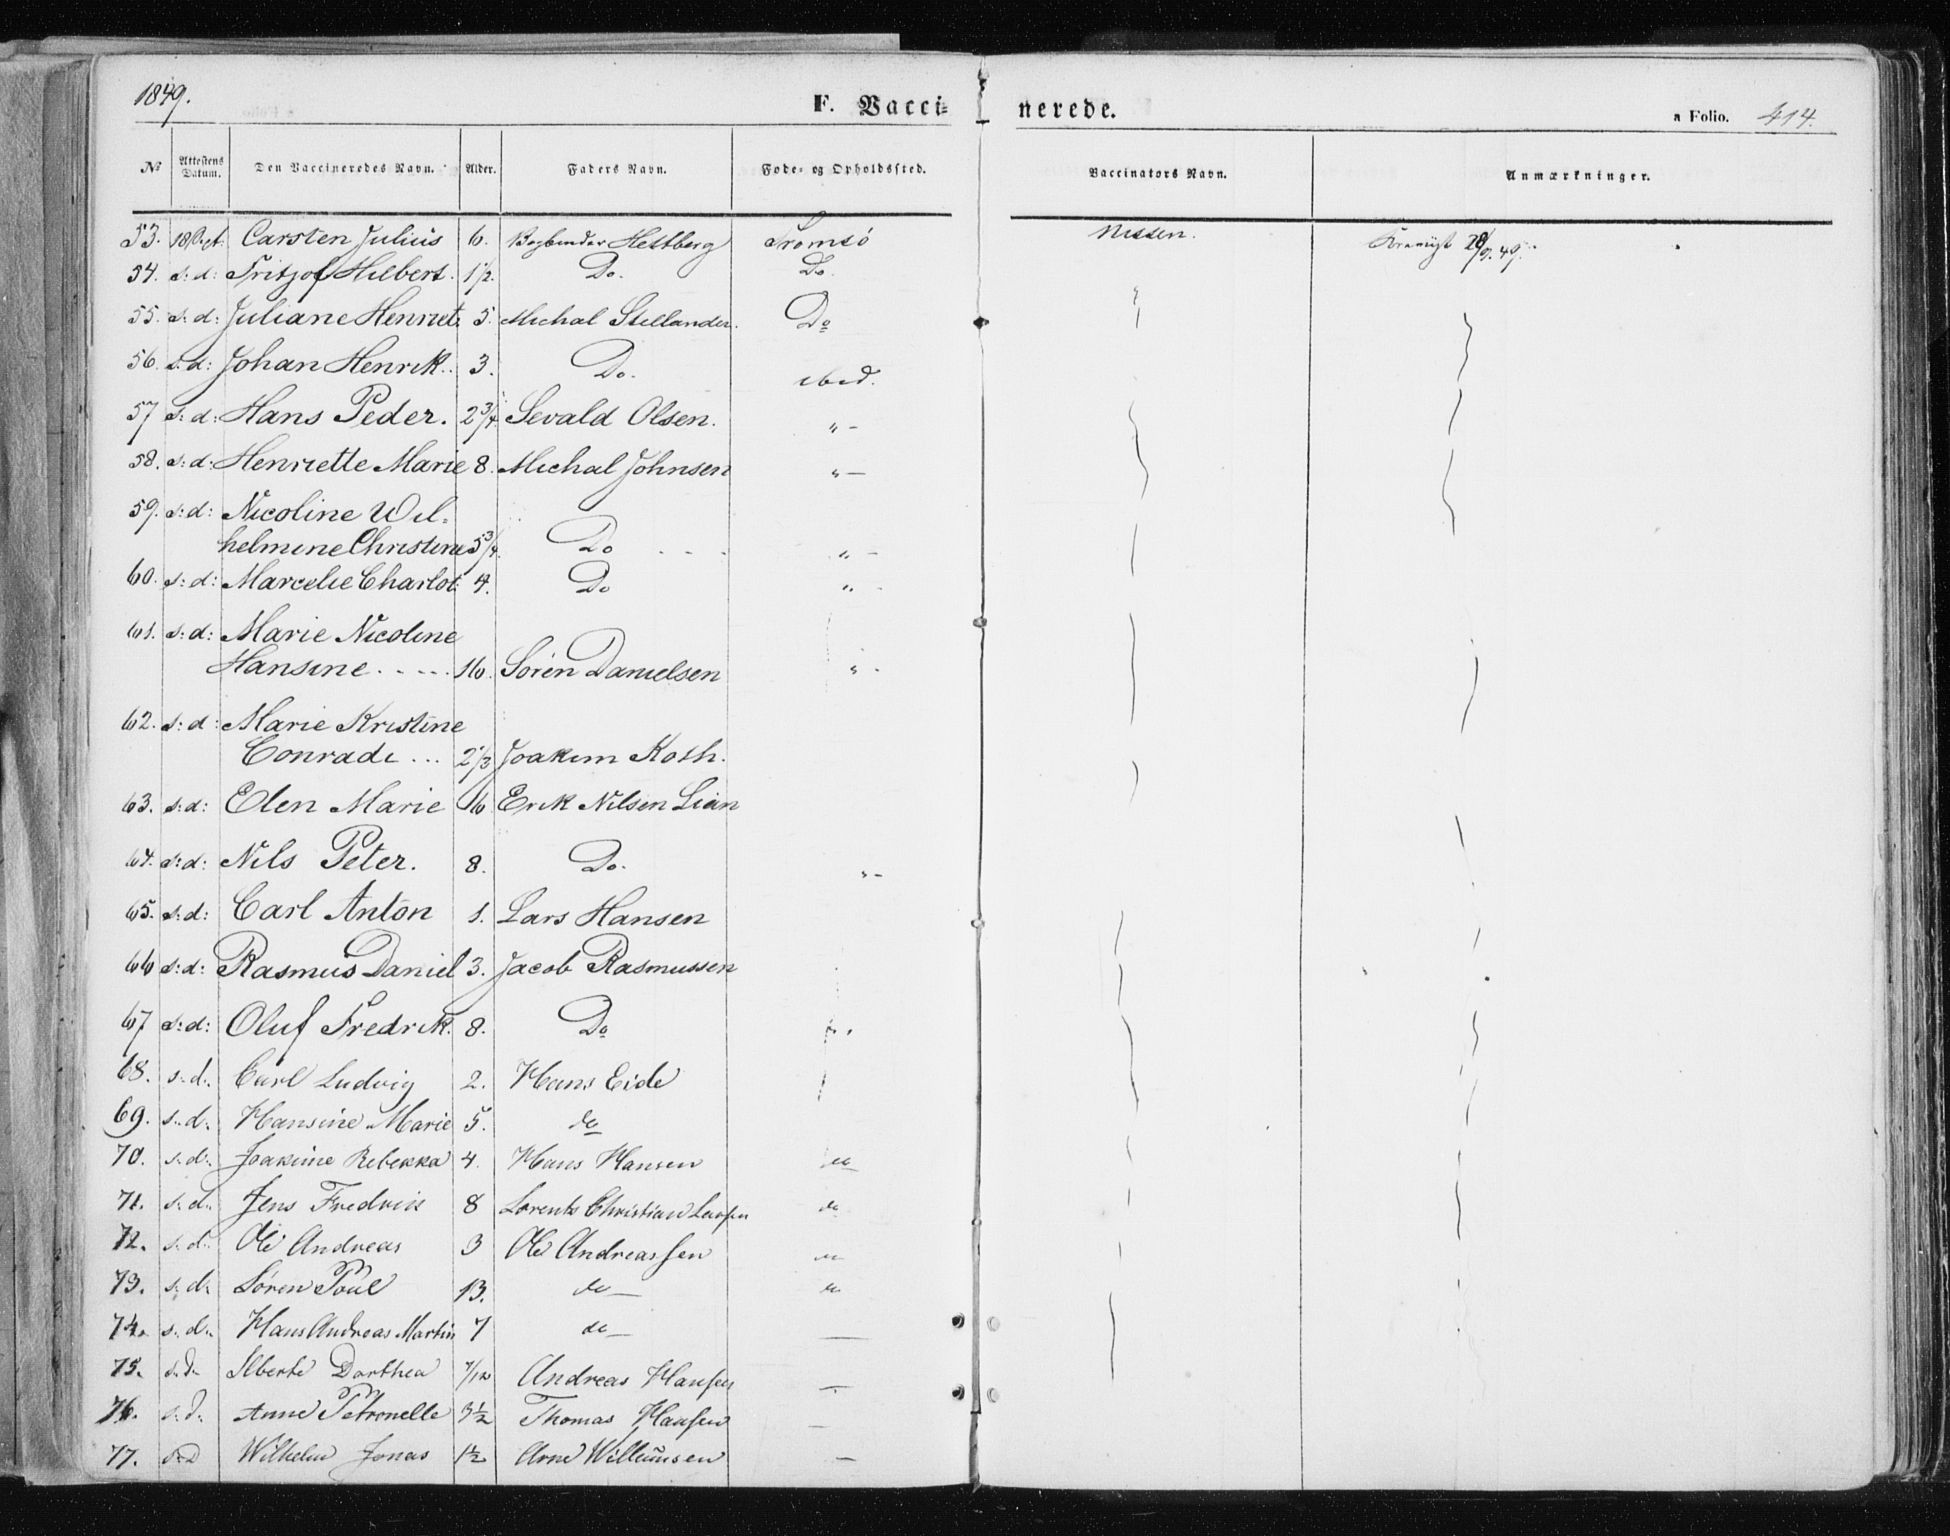 1849.
F. Vacci= nerede.
a Folio. 414.
№ Attestens Datum. Den Vaccineredes Navn. Alder. Faders Navn. Føde- og Opholdssted. Vaccinators Navn. Anmærkninger.
53. 18 Carsten Julius 6. Bogbinder Hettberg Tromsö Nissen.
54. s: d: Fritjof Hilbert. 1/2. Do. Do.
55. s: d: Juliane Henriet. 5. Michal Stellander. Do
56. s. d: Johan Henrik. 3. Do. ibid.
57 s: d: Hans Peder. 2 3/4 Sevald Olsen. „ -
58. s: d: Henriette Marie 8. Michal Johnsen „ -
59. s: d: Nicoline Wil-
helmine Christine 5 3/4. Do . . . „ -
60. s: d: Marcelie Charlot: 4. Do „ -
61. s: d: Marie Nicoline
Hansine . - - . 10. Sören Danielsen „ -
62. s: d: Marie Kristine
Conradi ... 2 1/3 Joakim Koth.
63. s: d: Elen Marie 10 Erik Nilsen Lian
64. s: d: Nils Peter. 8. Do. „ -
65. s: d: Carl Anton 1. Lars Hansen
66 s: d: Rasmus Daniel 3. Jacob Rasmussen
67 s: d: Oluf Fredrik. 8. Do
68. s. d. Carl Ludvig 2. Hans Eide
69. s. d. Hansine Marie 5. do
70. s. d. Joakime Rebekka 4. Hans Hansen do
71. s. d. Jens Fredrik 8 Lorents Christian Larsen do
72. s. d. Ole Andreas 3 Ole Andreassen do
73. s. d. Søren Poul 13. do — do
74. s. d. Hans Andreas Martin 7 do — —
75. s. d. Ilberte Dorthea 7/12 Andreas Hansen —
76. s. d. Anne Petronelle 3 1/2 Thomas Hansen —
77. s. d Wilhelm Jonas 1 1/2 Arne Willumsen —